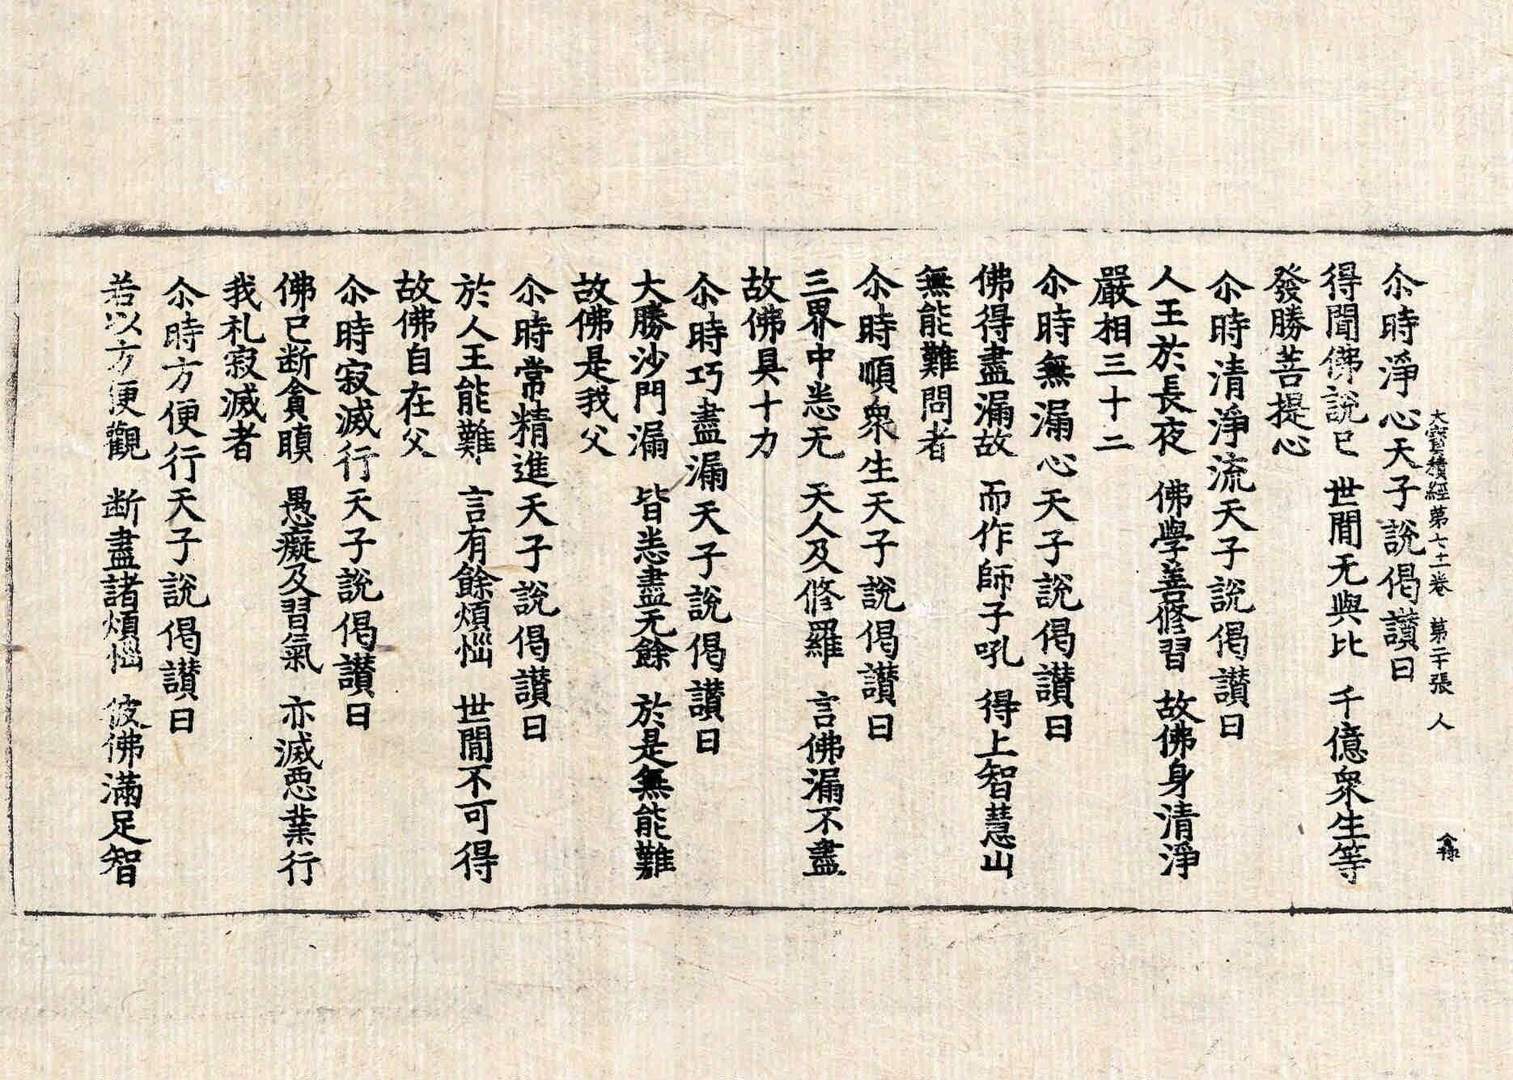 大寶積經第七十二卷　第二十張　人
尒時淨心天子說偈讃曰
得聞佛說已　世間无與比　千億衆生等
發勝菩提心
尒時清淨流天子說偈讃曰
人王於長夜　佛學善修習　故佛身清淨
嚴相三十二
尒時無漏心天子說偈讃曰
佛得盡漏故　而作師子吼　得上智慧山
無能難問者
尒時順衆生天子說偈讃曰
三界中悉无　天人及修羅　言佛漏不盡
故佛具十力
尒時巧盡漏天子說偈讃曰
大勝沙門漏　皆悉盡无餘　於是無能難
故佛是我父
尒時常精進天子說偈讃曰
於人王能難　言有餘煩惱　世間不可得
故佛自在父
尒時寂滅行天子說偈讃曰
佛已断貪瞋　愚癡及習氣　亦滅惡業行
我礼寂滅者
尒時方便行天子說偈讃曰
若以方便觀　断盡諸煩惱　彼佛滿足智